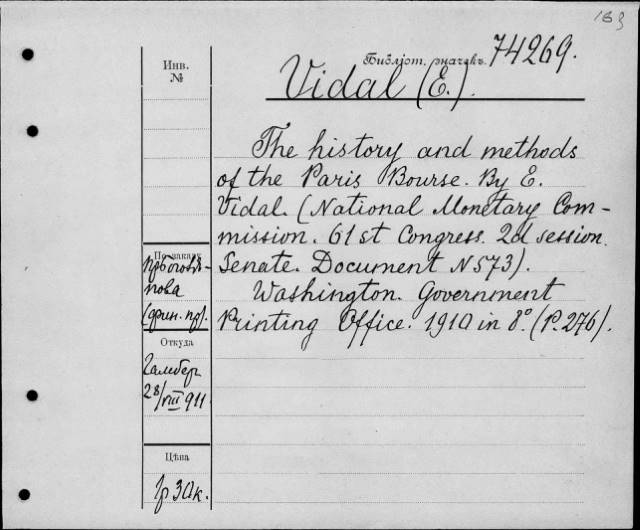 163
Инв.
№
Библіот. значекъ 74269.
Vidal (E.).
The history and methods
of the Paris Bourse. By E.
Vidal. (National Monetary Com-
mission. 61st Congress. 2d session.
Senate. Document N 573).
Washington. Government
Printing Office. 1910 in 8°. (P. 276).
По заказу
(фин. пр).
Откуда
28/VIII 911
Цѣна
1р 30к.